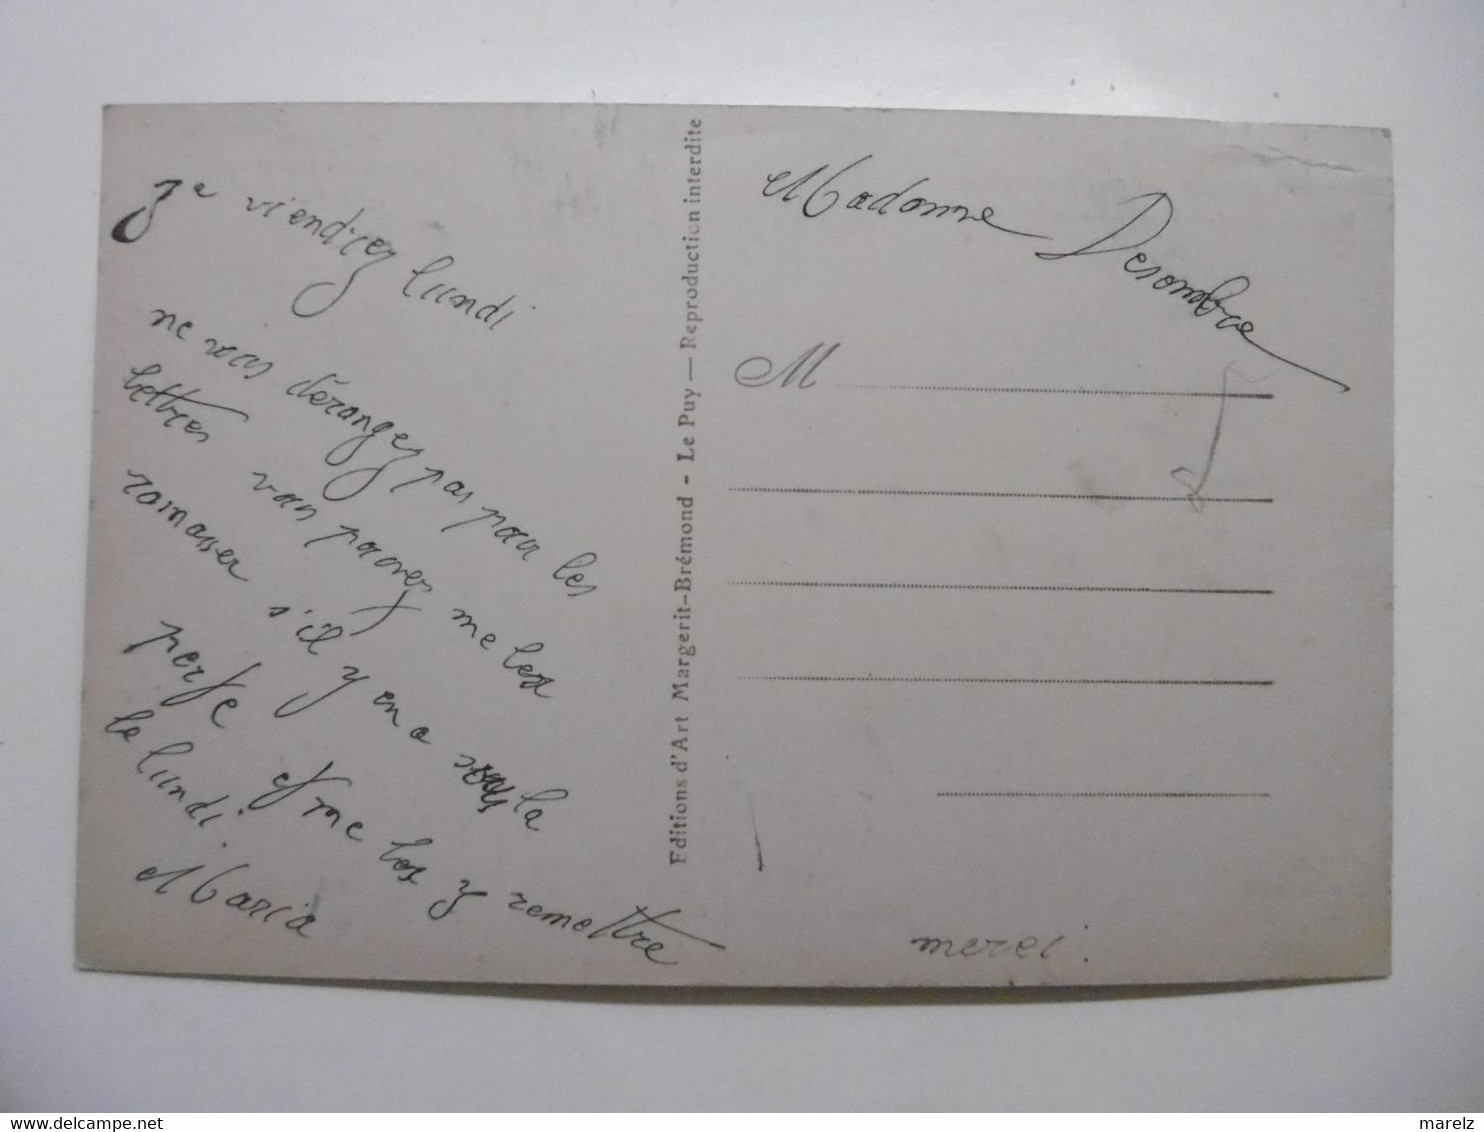 Je viendrez lundi
ne vous dérangez pas pour les
lettres vous pouvez me les
ramasser s'il y en a sous la
perse et me les y remettre
le lundi.
Maria
Editions d'Art Margerit-Brémond - Le Puy — Reproduction interdite
Madame Desombre
M
delcampe.net
marelz